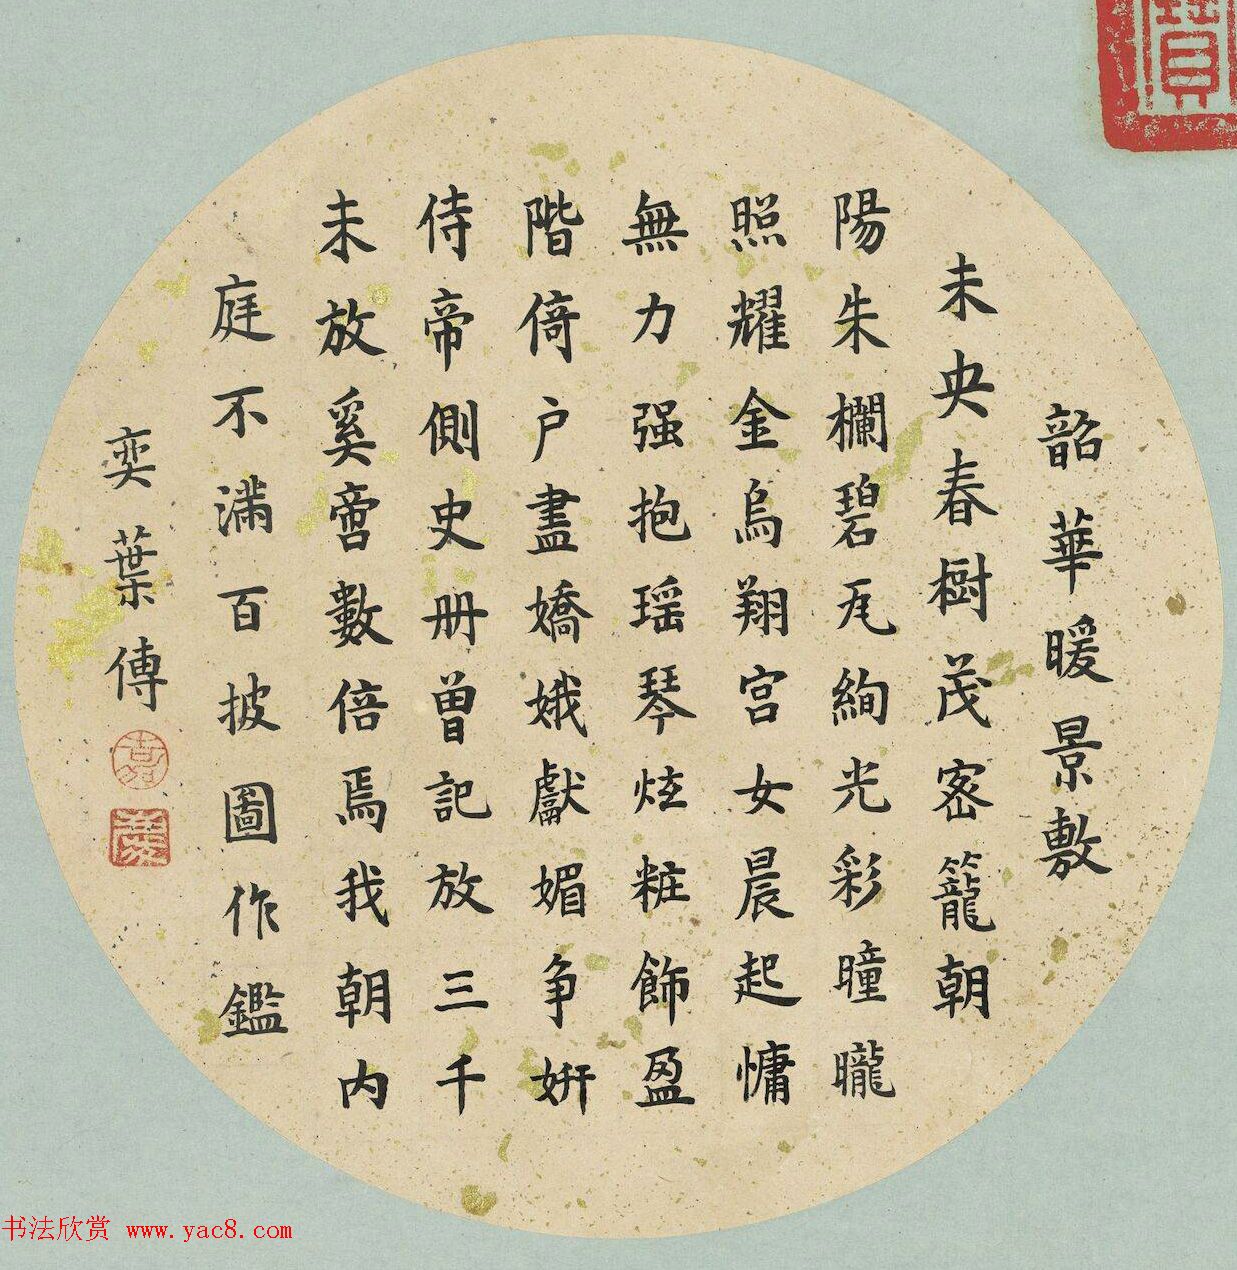 韶華暖景敷
未央春樹茂密籠朝
陽朱欄碧瓦絢光彩曈曨
照耀金烏翔宮女晨起慵
無力强抱瑶琴炫粧飾盈
階倚户盡嬌娥獻媚争妍
侍帝側史册曾記放三千
未放奚啻數倍焉我朝内
庭不滿百披圖作鑑
奕葉傳
寶
書法欣赏 www.yac8.com